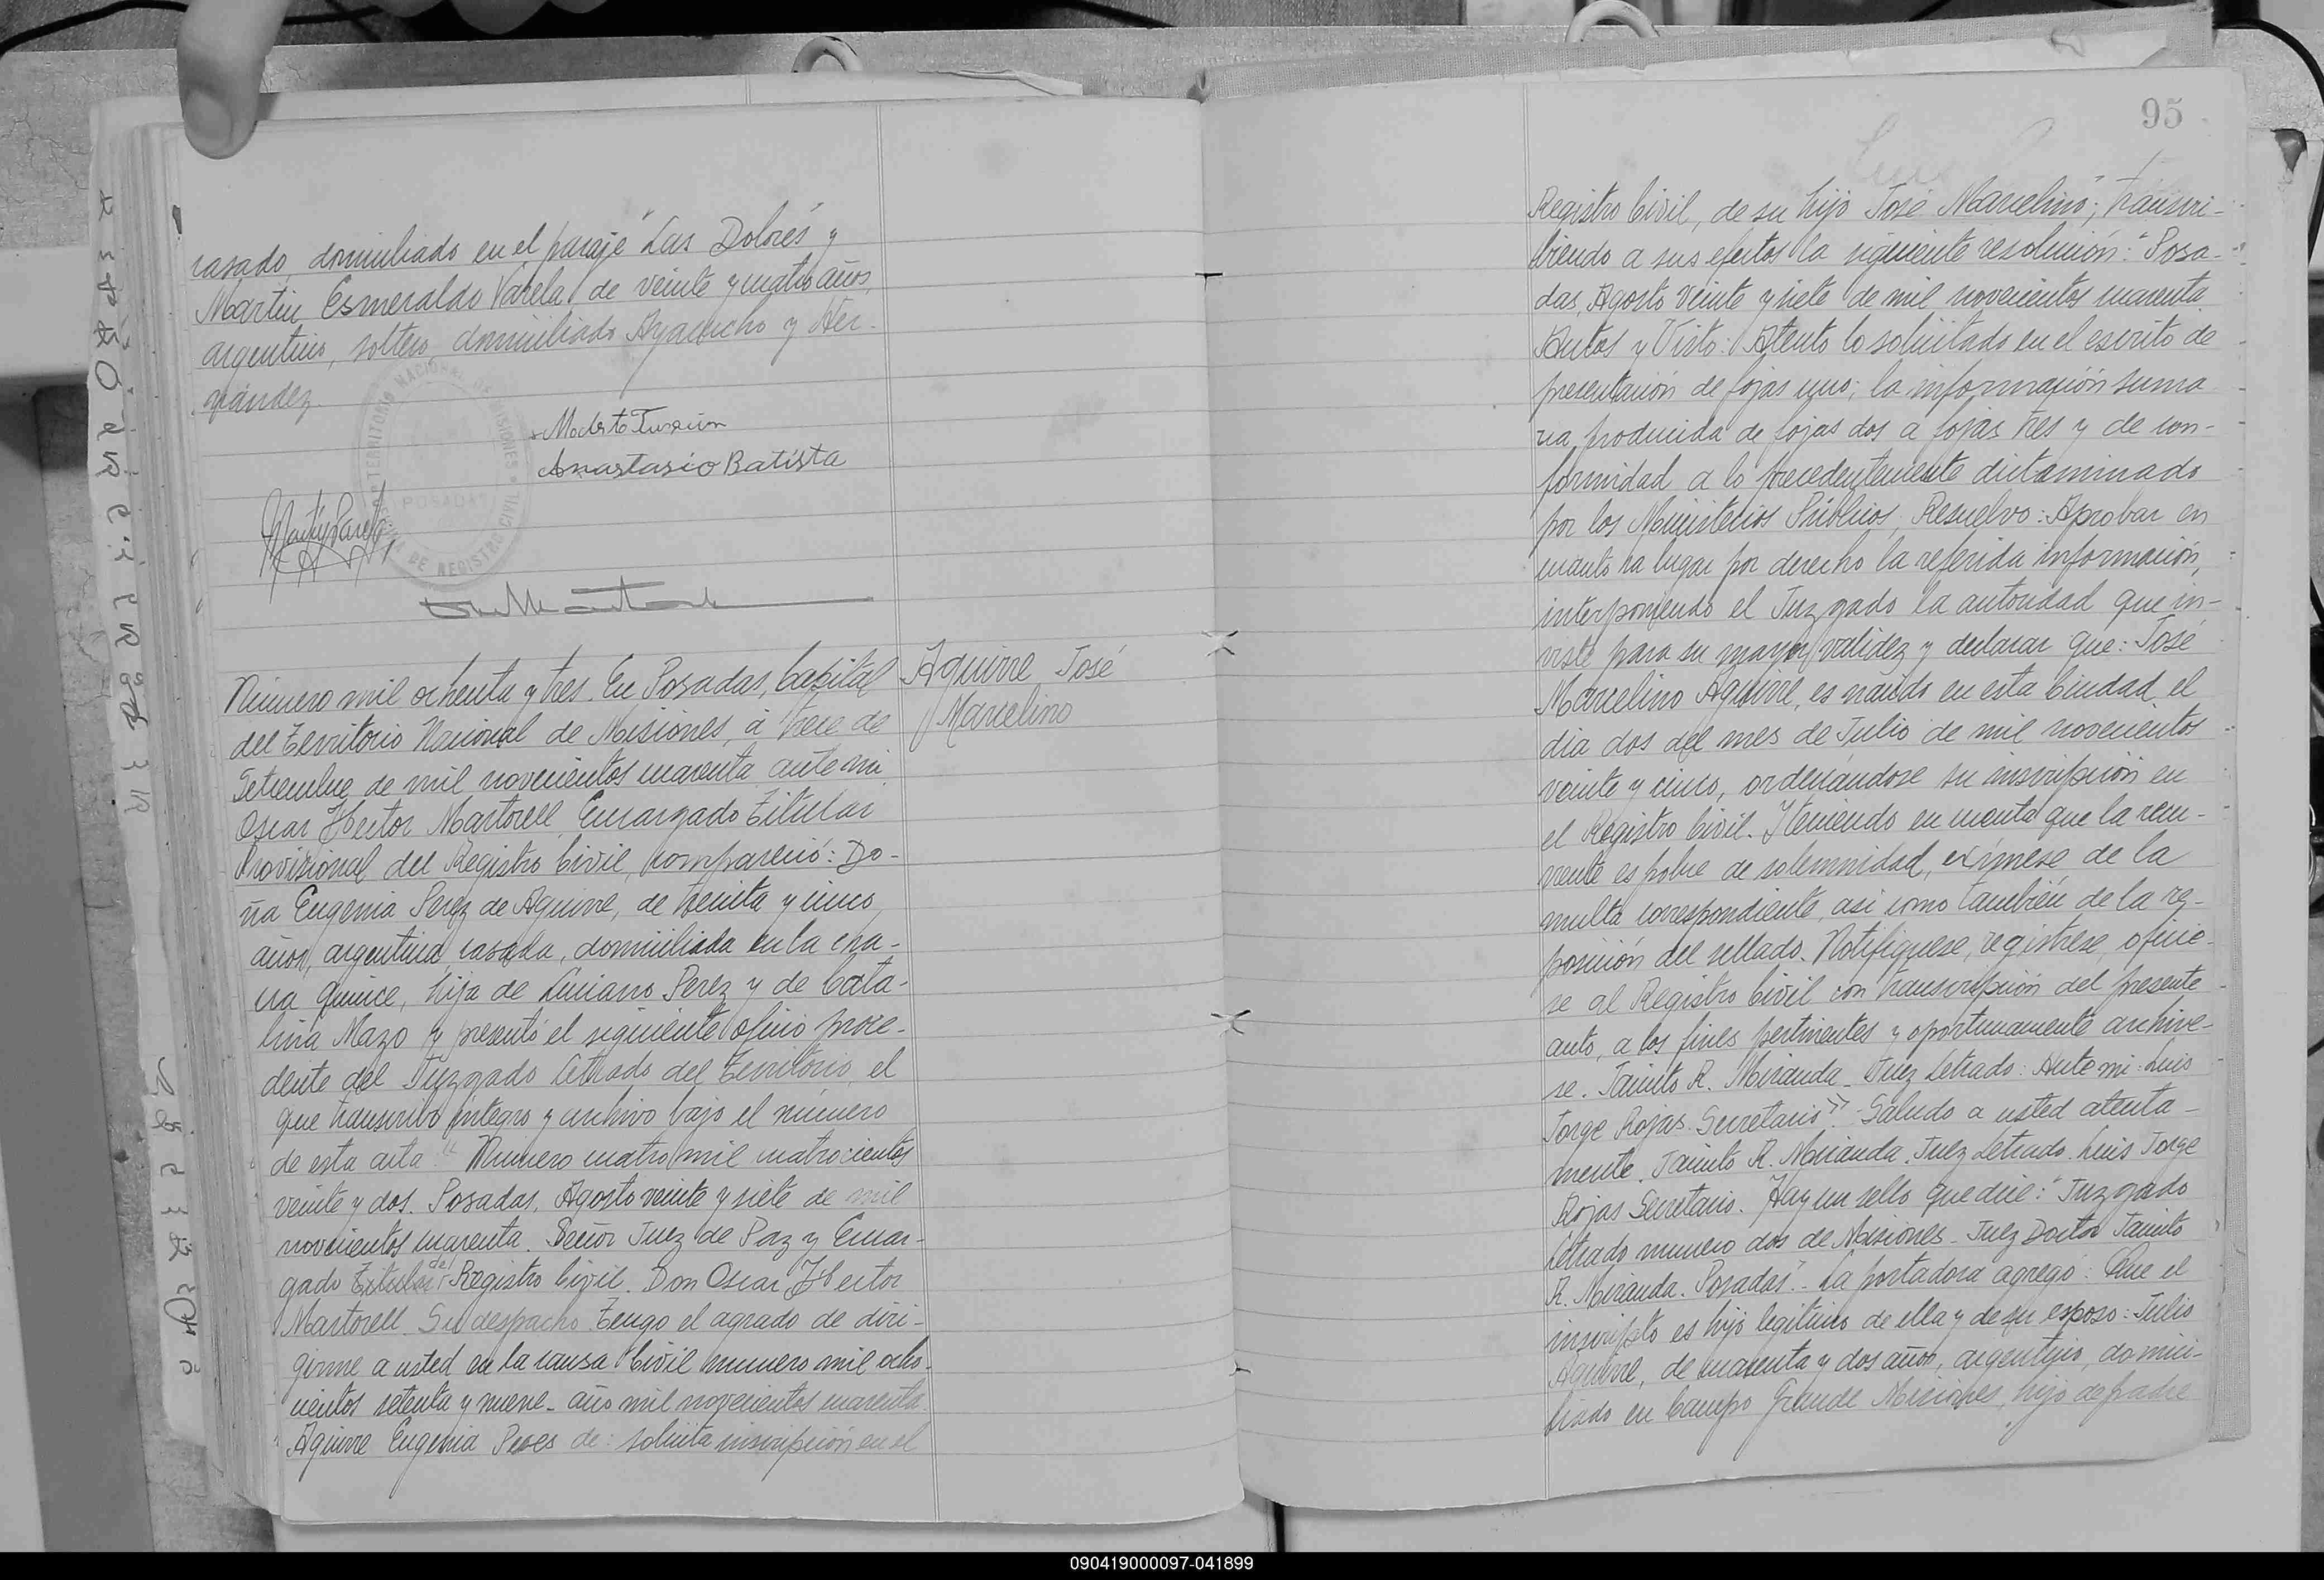 casado, domiciliado en el paraje "Las Dolores" y
Martin Esmeraldo Varela de veinte y cuatro años,
argentino, soltero, domiciliado Ayacucho y Her-
nández.
TERRITORIO NACIONAL DE MISIONES
POSADAS
DE REGISTRO CIVIL
Anastasio Batista
Número mil ochenta y tres. En Posadas, Capital
del Territorio Nacional de Misiones, á trece de
Setiembre de mil novecientos cuarenta ante mi
Oscar Hector Martorell Encargado Titular
Provisional del Registro Civil, compareció: Do-
ña Eugenia Perez de Aguirre, de treinta y cinco
años, argentina, casada, domiciliada en la cha-
cra quince, hija de Luciano Perez y de Cata-
lina Mazo y presentó el siguiente oficio proce-
dente del Juzgado Letrado del Territorio, el
que transcribo íntegro y archivo bajo el número
de esta acta. "Número cuatro mil cuatrocientos
veinte y dos. Posadas, Agosto veinte y siete de mil
novecientos cuarenta. Señor Juez de Paz y Encar-
gado Titular del Registro Civil. Don Oscar Hector
Martorell. Su despacho. Tengo el agrado de diri-
girme a usted en la causa Civil número mil ocho-
cientos setenta y nueve - año mil novecientos cuarenta.
Aguirre Eugenia Peres de: solicita inscripción en el
Aguirre José
Marcelino
95
Registro Civil, de su hijo José Marcelino", transcri-
biendo a sus efectos la siguiente resolución: "Posa-
das, Agosto veinte y siete de mil novecientos cuarenta.
Autos y Visto: Atento lo solicitado en el escrito de
presentación de fojas uno; la información suma
ria producida de fojas dos a fojas tres y de con-
formidad a lo precedentemente dictaminado
por los Ministerios Públicos, Resuelvo: Aprobar en
cuanto ha lugar por derecho la referida información,
interponiendo el Juzgado la autoridad que in-
viste para su mayor validez y declarar que: José
Marcelino Aguirre, es nacido en esta Ciudad el
dia dos del mes de Julio de mil novecientos
veinte y cinco, ordenándose su inscripción en
el Registro Civil. Y teniendo en cuenta que la recu-
rrente es pobre de solemnidad, exímese de la
multa correspondiente, asi como también de la re-
posición del sellado. Notifiquese, registrese, oficie-
se al Registro Civil con transcripción del presente
auto, a los fines pertinentes y oportunamente archive-
se. Jacinto R. Miranda - Juez Letrado: Ante mi: Luis
Jorge Rojas. Secretario" - Saludo a usted atenta-
mente. Jacinto R. Miranda. Juez Letrado. Luis Jorge
Rojas Secretario. Hay un sello que dice: "Juzgado
Letrado número dos de Misiones - Juez Doctor Jacinto
R. Miranda. Posadas" - La portadora agregó: Que el
inscripto es hijo legítimo de ella y de su esposo: Julio
Aguirre, de cuarenta y dos años, argentino, domici-
liado en Campo Grande Misiones, hijo de padre
090419000097-041899